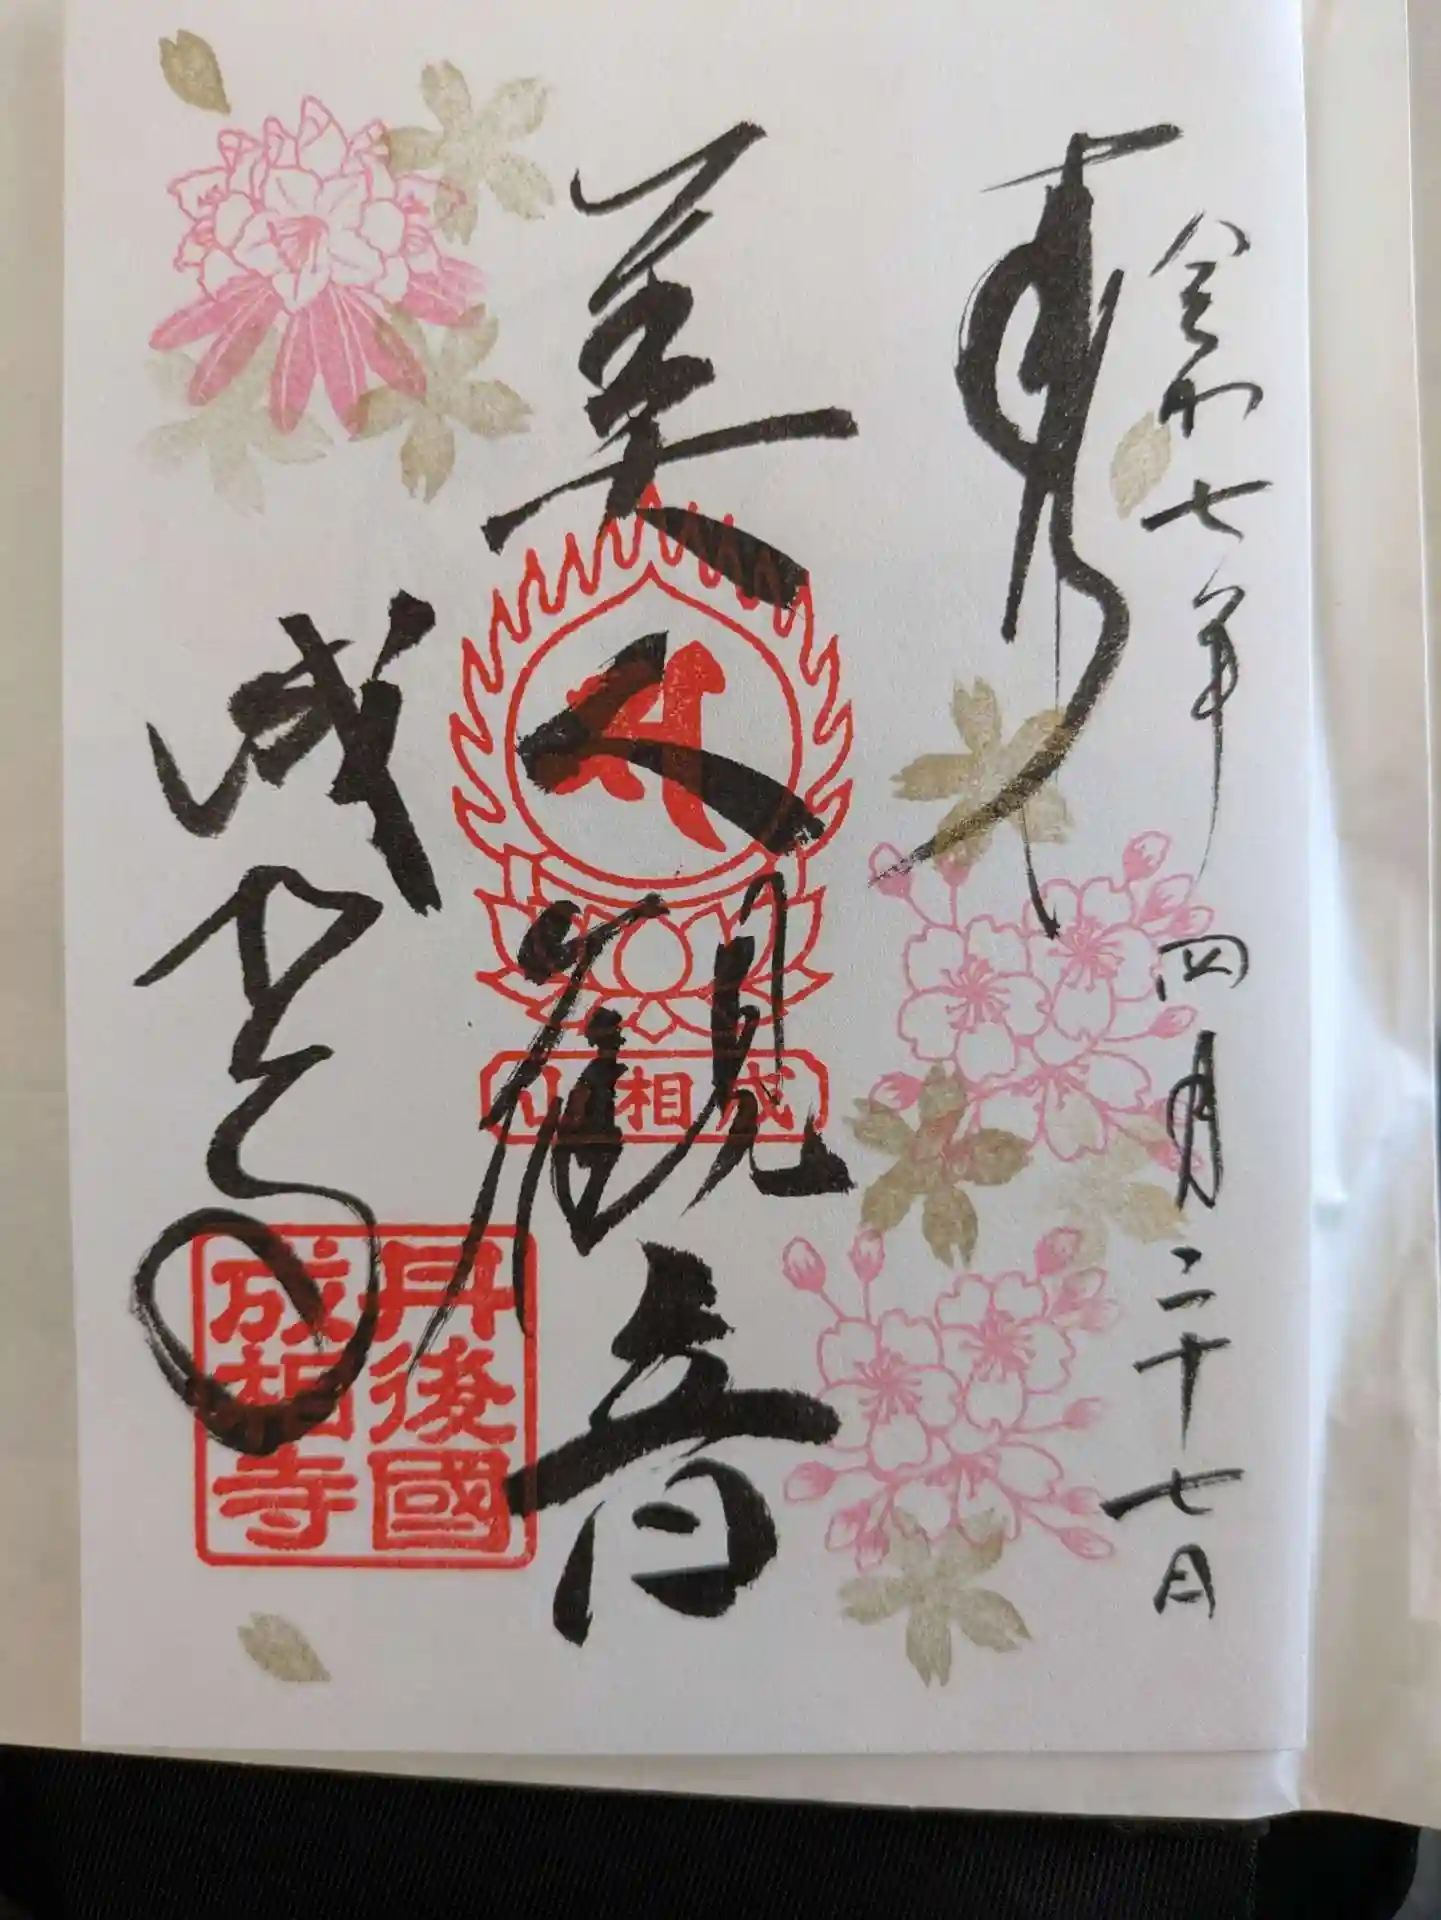 令和七年四月二十七日
奉拝
美人観音
成相山
成相寺
丹後國
成相寺